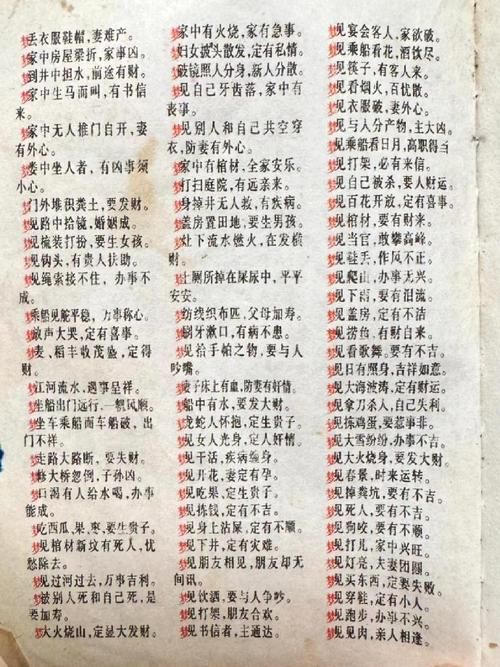 梦丢衣服鞋帽，妻难产。
梦家中房屋梁折，家事凶。
梦到井中担水，前途有财。
梦家中生马而叫，有书信
来。
梦家中无人推门自开，妻
有外心。
梦娄中坐人者，有凶事须
小心。
梦门外堆积粪土，要发财。
梦见路中拾镜，婚姻成。
梦见梳装打扮，要生女孩。
梦见钩头，有贵人扶助。
梦见绳索接不住，办事不
成。
梦乘船见舵平稳，万事称心。
梦放声大哭，定有喜事。
梦麦、稻丰收茂盛，定得
财。
梦江河流水，遇事呈祥。
梦坐船出门远行，一帆风顺。
梦坐车乘船而车船破，出
门不祥。
梦走路大路断，要失财。
梦修大桥忽倒，子孙凶。
梦口渴有人给水喝，办事
能成。
梦吃西瓜，果，枣，要生贵子。
梦见棺材新坟有死人，忧
愁除去。
梦见过河过去，万事吉利。
梦被别人死和自己死，是
要加寿。
梦大火烧山，定显大发财。
梦家中有火烧，家有急事。
梦妇女披头散发，定有私情。
梦破镜照人分身，新人分散。
梦见自己牙齿落，家中有
丧事。
梦见别人和自己共空穿
衣，防妻有外心。
梦家中有棺材，全家安乐。
梦打扫庭院，有远亲来。
梦身掉井无人救，有疾病。
梦盖房置田地，要生男孩。
梦灶下流水燃火，在发横
财。
梦上厕所掉在屎尿中，平平
安安。
梦纺线织布匹，父母加寿。
梦刷牙漱口，有病不患。
梦见拾手帕之物，要与人
吵嘴。
梦妻子床上有血，防妻有奸情。
梦船中有水，要发大财。
梦龙蛇人怀抱，定生贵子。
梦见女人光身，定人奸情。
梦见干活，疾病缠身。
梦见开花，妻定有孕。
梦见吃果，定生贵子。
梦见拣钱，定有不吉。
梦见身上沾屎，定有不顺。
梦见下井，定有灾难。
梦见朋友相见，朋友却无
间讯。
梦见饮酒，要与人争吵。
梦见打架，朋友合欢。
梦见书信者，主通达。
梦见宴会客人，家欲破。
梦见乘船看花，酒饮尽。
梦见筷子，有客人来。
梦见看烟火，百忧散。
梦见衣服破，妻外心。
梦见与人分产物，主大凶。
梦见乘船看日月，高职得当
梦见打架，必有来信。
梦见自己被杀，要人财运。
梦见百花开放，定有喜事。
梦见棺材，要有财来。
梦见当官，敢攀高峰。
梦见鞋丢，作风不正。
梦见爬山，办事无兴。
梦见下雨，要有泪流。
梦见盖房，定有不洁
梦见捞鱼，有财自来。
梦见看歌舞，要有不吉。
梦见日有照身，吉祥如意。
梦见大海波涛，定有财运。
梦见拿刀杀人，自己失利。
梦见拣鸡蛋，要惹事非。
梦见大雪纷纷，办事不吉。
梦见大火烧身，要发大财。
梦见春景，时来运转。
梦见掉粪坑，要有不吉。
梦见死人，要有不吉。
梦见狗咬，要有不顺。
梦见打儿，家中兴旺。
梦见灯亮，夫妻团圆。
梦见买东西，定要失败。
梦见穿鞋，定有小人。
梦见跑步，办事不兴。
梦见见肉，亲人相逢。